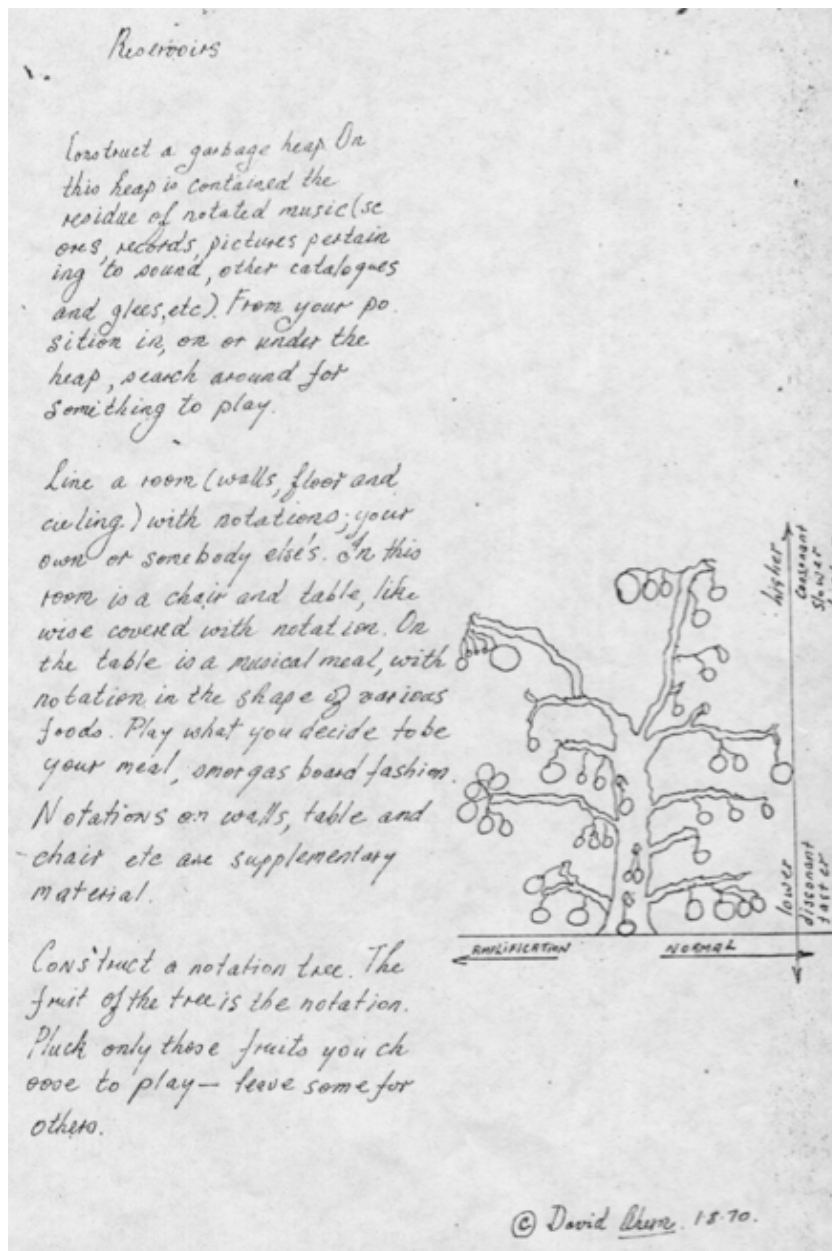 Reservoirs
Construct a garbage heap. On
this heap is contained the
residue of notated music (sc
ores, records, pictures pertain
ing to sound, other catalogues
and glees, etc). From your po
sition in, on or under the
heap, search around for
something to play.
Line a room (walls, floor and
cieling) with notations; your
own or somebody else's. In this
room is a chair and table, like
wise covered with notation. On
the table is a musical meal, with
notation in the shape of various
foods. Play what you decide to be
your meal, smorgas board fashion.
Notations on walls, table and
chair etc are supplementary
material.
Construct a notation tree. The
fruit of the tree is the notation.
Pluck only those fruits you ch
oose to play — leave some for
others.
higher
consonant
slower
lower
dissonant
faster
AMPLIFICATION
NORMAL
© David Ahern. 1·8·70.